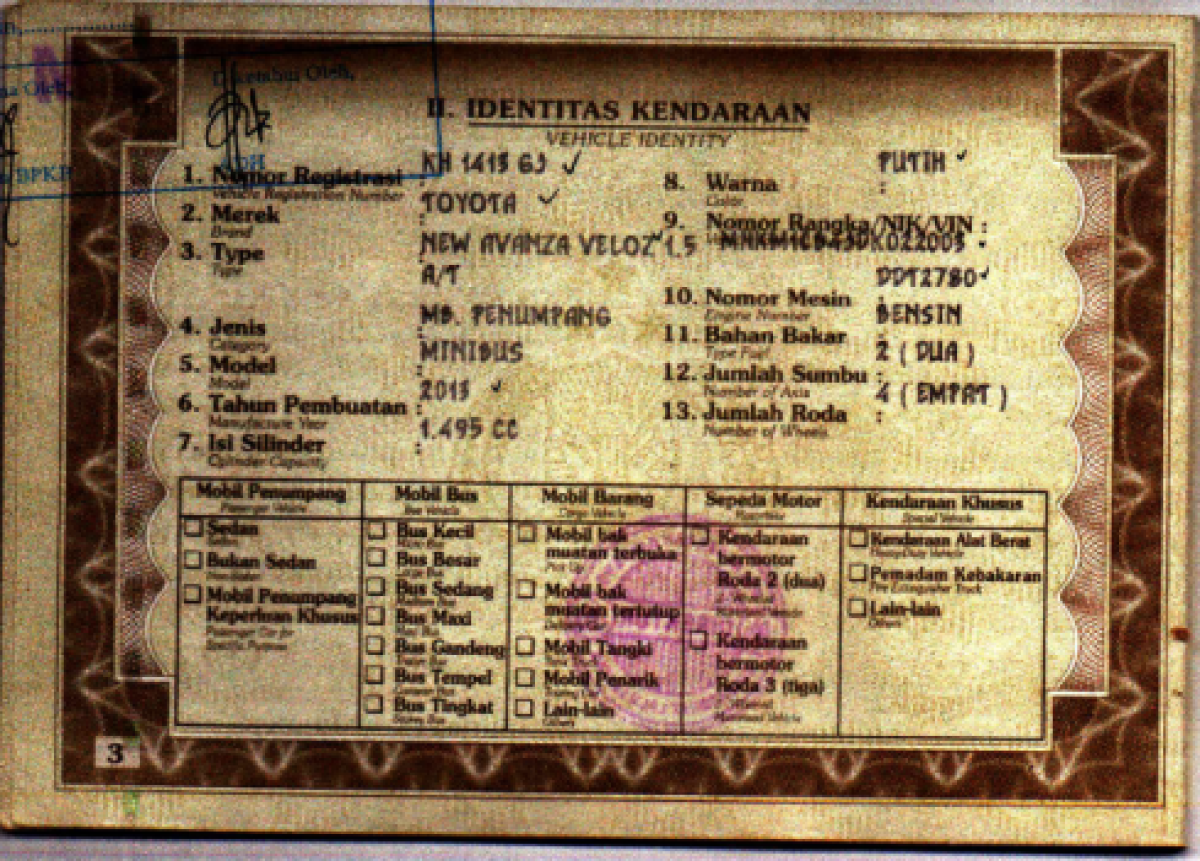 Diketahui Oleh,
BPKB
II. IDENTITAS KENDARAAN
VEHICLE IDENTITY
1. Nomor Registrasi : KH 1413 GJ
Vehicle Registration Number
2. Merek : TOYOTA
Brand
3. Type : NEW AVANZA VELOZ 1.5
Type
A/T
4. Jenis : MB. PENUMPANG
Category
5. Model : MINIBUS
Model
6. Tahun Pembuatan : 2013
Manufacture Year
7. Isi Silinder : 1.495 CC
Cylinder Capacity
8. Warna : PUTIH
Color
9. Nomor Rangka/NIK/VIN :
10. Nomor Mesin : DDT2780
Engine Number
11. Bahan Bakar : BENSIN
Type Fuel
12. Jumlah Sumbu : 2 ( DUA )
Number of Axis
13. Jumlah Roda : 4 ( EMPAT )
Number of Wheels
Mobil Penumpang
Passenger Vehicle
Sedan
Bukan Sedan
Mobil Penumpang
Keperluan Khusus
Passenger Car for
Specific Purpose
Mobil Bus
Bus Vehicle
Bus Kecil
Bus Besar
Bus Sedang
Bus Maxi
Bus Gandeng
Bus Tempel
Bus Tingkat
Mobil Barang
Cargo Vehicle
Mobil bak
muatan terbuka
Pick Up
Mobil bak
muatan tertutup
Mobil Tangki
Mobil Penarik
Lain-lain
Others
Sepeda Motor
Kendaraan
bermotor
Roda 2 (dua)
Kendaraan
bermotor
Roda 3 (tiga)
Kendaraan Khusus
Special Vehicle
Kendaraan Alat Berat
Pemadam Kebakaran
Fire Extinguisher Truck
Lain-lain
Others
3